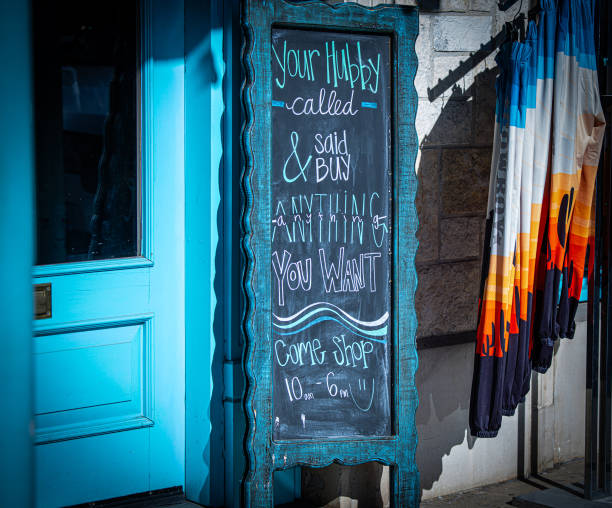 your Hubby
called
& said
BUY
ANYTHING
-anything-
YOU WANT
Come Shop
10am-6pm